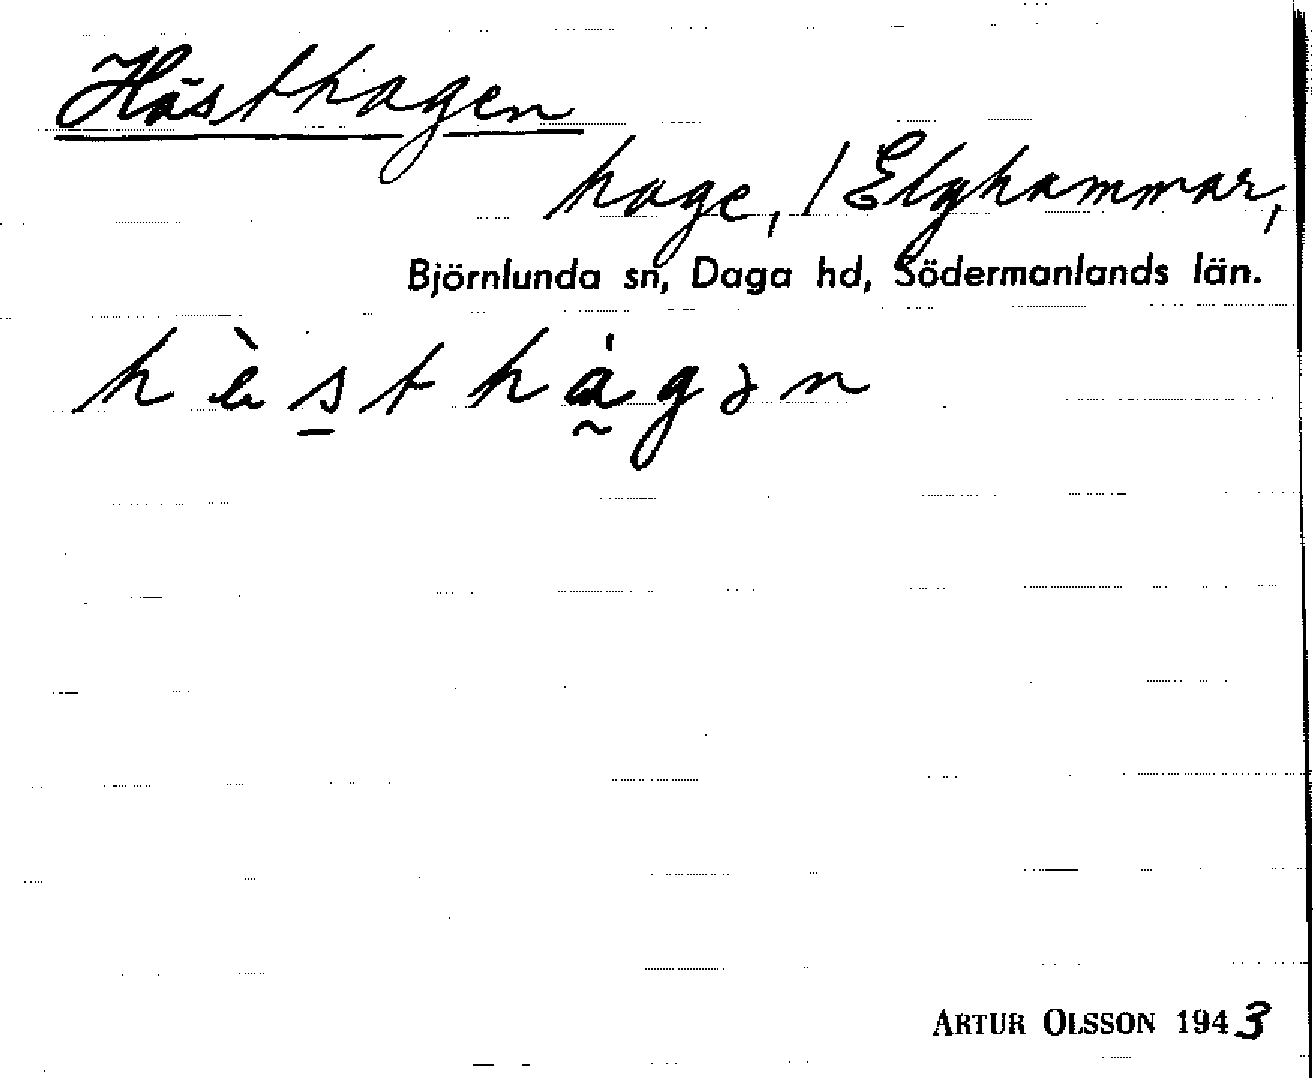 Hästhagen
hage, / Elghammar,
Björnlunda sn, Daga hd, Södermanlands län.
hὲsthágən
ARTUR OLSSON 1943